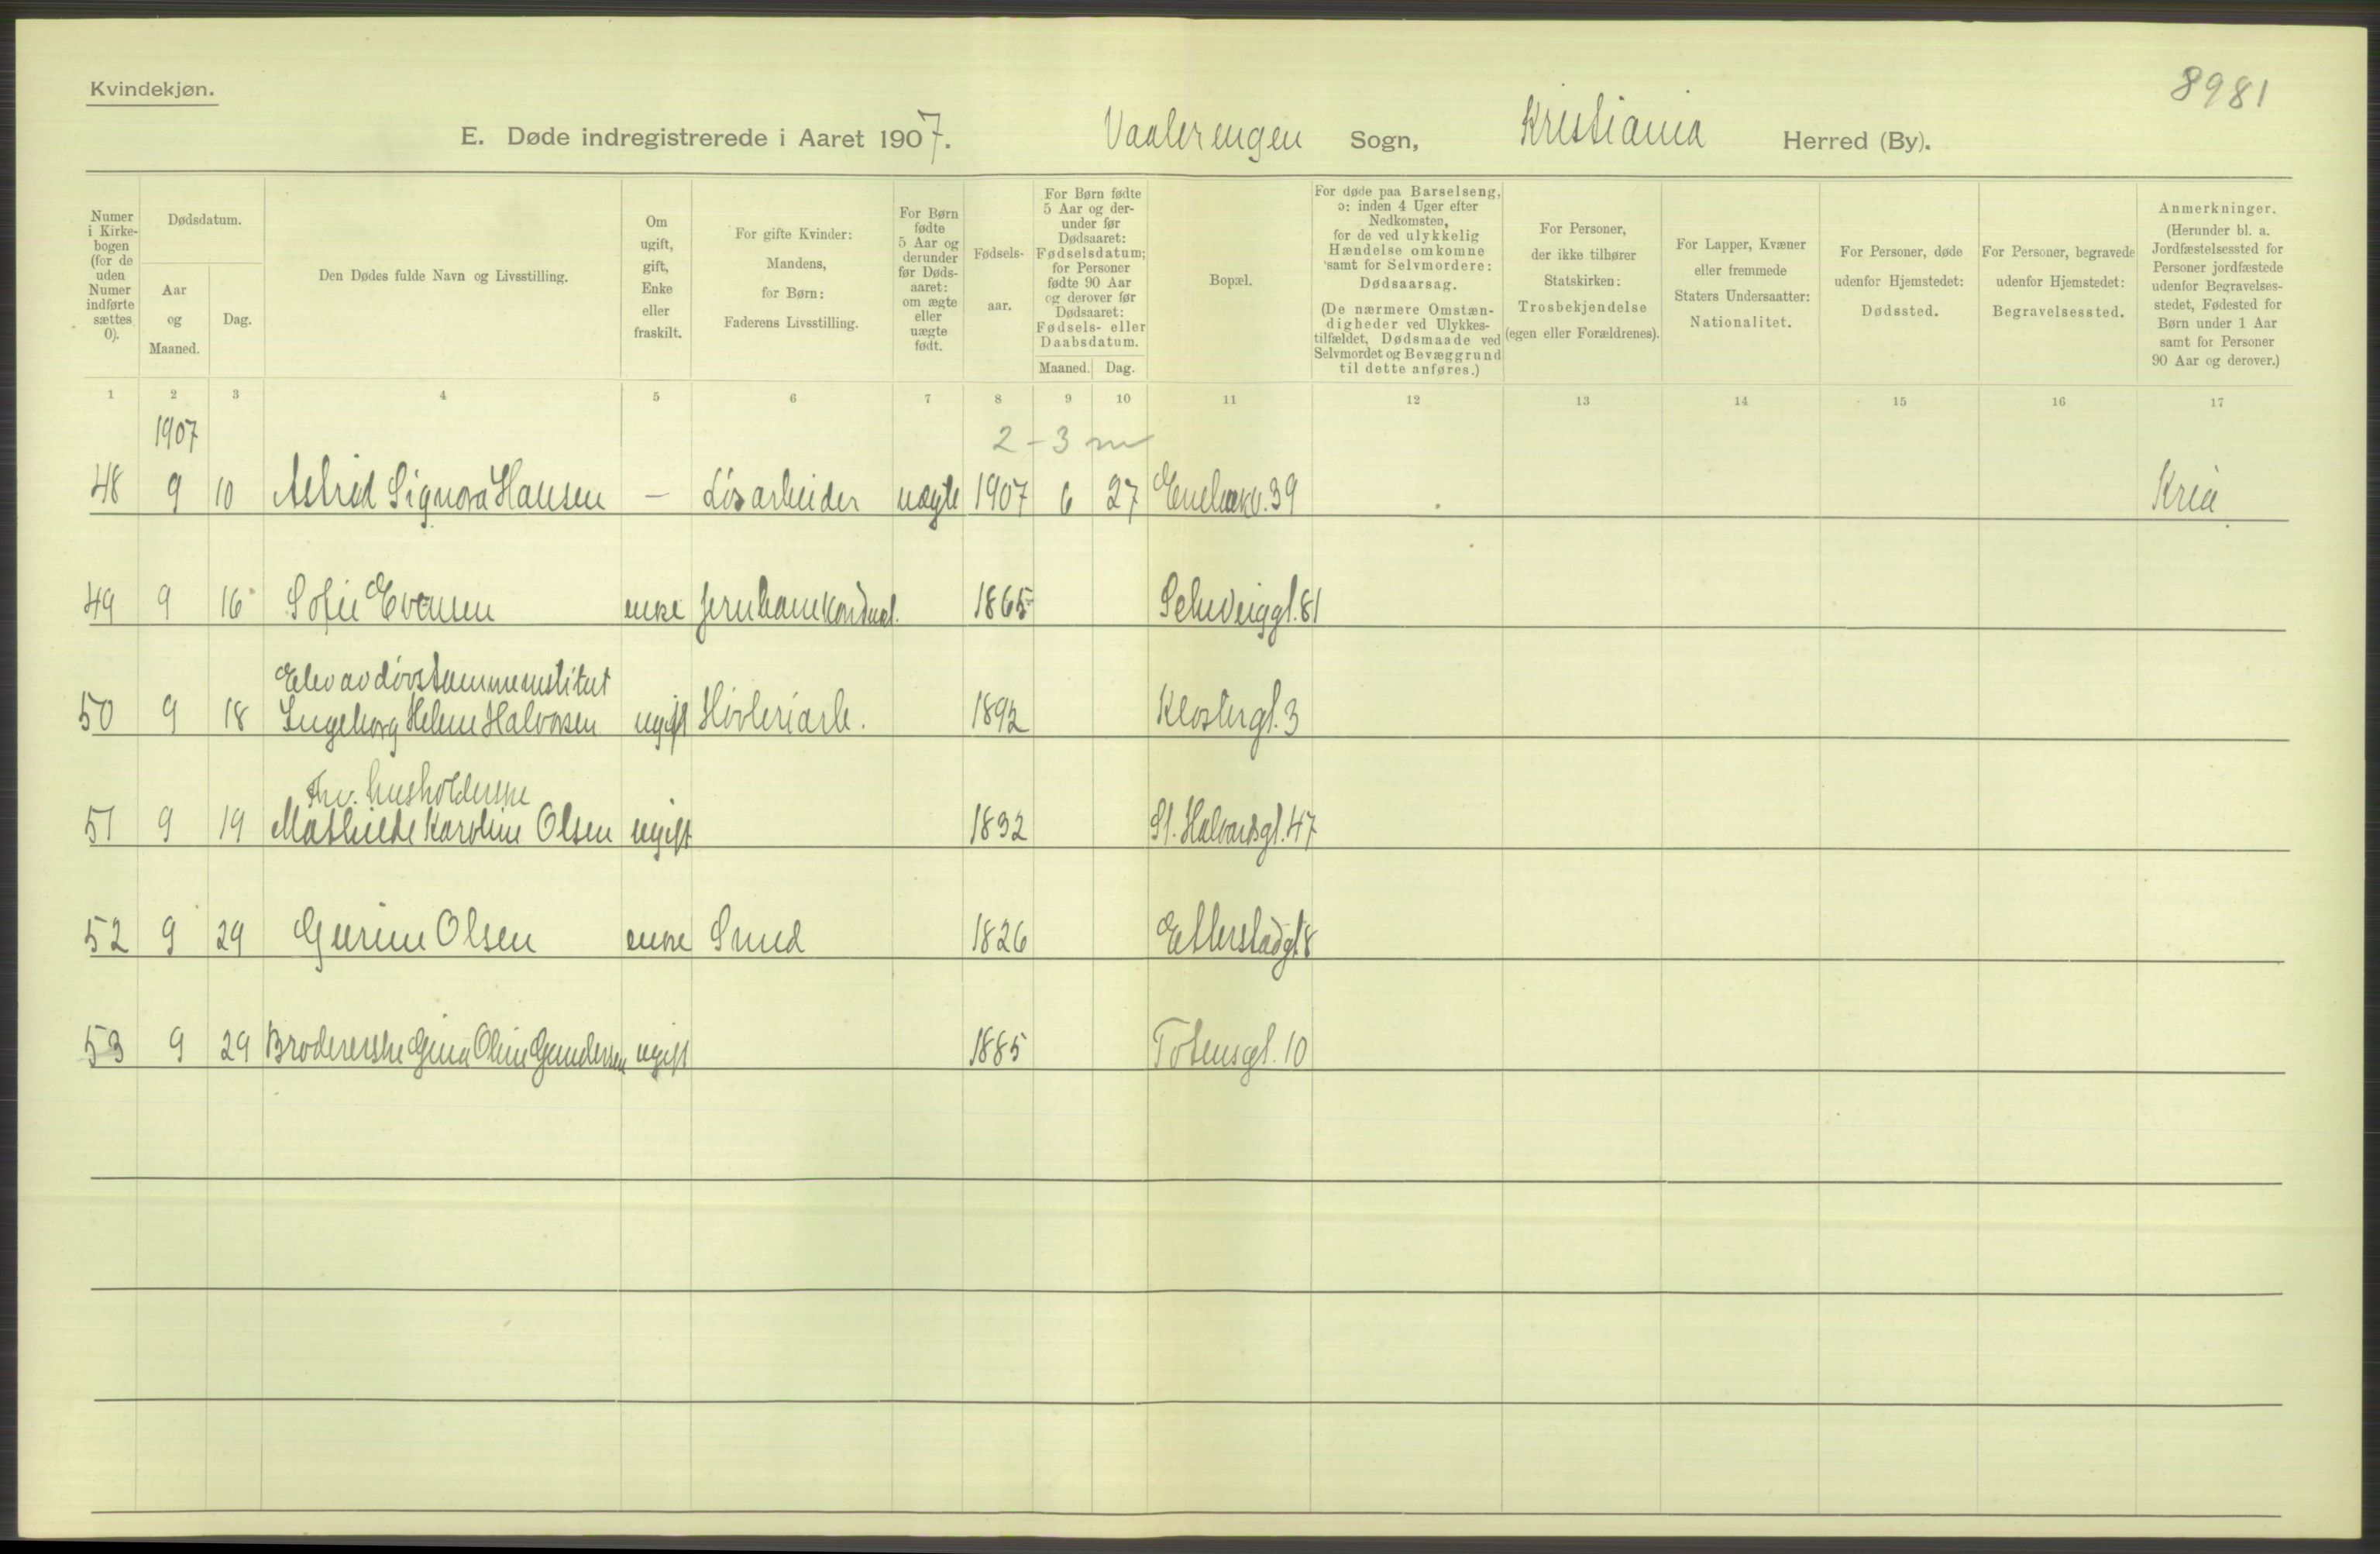 Kvindekjøn.
8981
E. Døde indregistrerede i Aaret 1907. Vaalerengen Sogn, Kristiania Herred (By).
Numer i Kirke-
bogen (for de
uden Numer
indførte
sættes 0).
Dødsdatum.
Aar og Maaned.
Dag.
Den Dødes fulde Navn og Livsstilling.
Om ugift, gift, Enke eller fraskilt.
For gifte Kvinder:
Mandens,
for Børn:
Faderens Livsstilling.
For Børn
fødte
5 Aar og
derunder
før Døds-
aaret:
om ægte
eller
uægte
født.
Fødsels-
aar.
For Børn fødte
5 Aar og der-
under før
Dødsaaret:
Fødselsdatum;
for Personer
fødte 90 Aar
og derover før
Dødsaaret:
Fødsels- eller
Daabsdatum.
Maaned. Dag.
Bopæl.
For døde paa Barselseng,
ɔ: inden 4 Uger efter
Nedkomsten,
for de ved ulykkelig
Hændelse omkomne
samt for Selvmordere:
Dødsaarsag.
(De nærmere Omstæn-
digheder ved Ulykkes-
tilfældet, Dødsmaade ved
Selvmordet og Bevæggrund
til dette anføres.)
For Personer,
der ikke tilhører
Statskirken:
Trosbekjendelse
(egen eller Forældrenes).
For Lapper, Kvæner
eller fremmede
Staters Undersaatter:
Nationalitet.
For Personer, døde
udenfor Hjemstedet:
Dødssted.
For Personer, begravede
udenfor Hjemstedet:
Begravelsessted.
Anmerkninger.
(Herunder bl. a.
Jordfæstelsessted for
Personer jordfæstede
udenfor Begravelses-
stedet, Fødested for
Børn under 1 Aar
samt for Personer
90 Aar og derover.)
1 2 3 4 5 6 7 8 9 10 11 12 13 14 15 16 17
1907 2-3 m
48 9 10 Astrid Signora Hansen — Løsarbeider uægte 1907 6 27 Enebakv. 39 Kria
49 9 16 Sofie Evensen enke Jernbanekonduct. 1865 Schweiggt. 81
Elev av døvstummeinstitut
50 9 18 Ingeborg Helene Halvorsen ugift Høvleriarb. 1892 Klostergt. 3
Fhv. husholderske
51 9 19 Mathilde Karoline Olsen ugift 1832 St. Halvardsgt. 47
52 9 29 Gurine Olsen enke Smed 1826 Etterstadgt 8
53 9 29 Brodererske Gina Oline Gundersen ugift 1885 Totensgt. 10